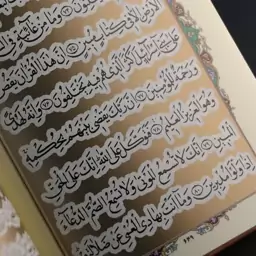 وَمَا مِنْ غَائِبَةٍ فِي
الْأَرْضِ إِلَّا فِي كِتَابٍ مُبِينٍ ﴿٧٥﴾ إِنَّ هَٰذَا الْقُرْآنَ يَقُصُّ
عَلَىٰ بَنِي إِسْرَائِيلَ أَكْثَرَ الَّذِي هُمْ فِيهِ يَخْتَلِفُونَ ﴿٧٦﴾ وَإِنَّهُ لَهُدًى
وَرَحْمَةٌ لِلْمُؤْمِنِينَ ﴿٧٧﴾ إِنَّ رَبَّكَ يَقْضِي بَيْنَهُمْ بِحُكْمِهِ
وَهُوَ الْعَزِيزُ الْعَلِيمُ ﴿٧٨﴾ فَتَوَكَّلْ عَلَى اللَّهِ إِنَّكَ عَلَى الْحَقِّ
الْمُبِينِ ﴿٧٩﴾ إِنَّكَ لَا تُسْمِعُ الْمَوْتَىٰ وَلَا تُسْمِعُ الصُّمَّ الدُّعَاءَ
إِذَا وَلَّوْا مُدْبِرِينَ ﴿٨٠﴾ وَمَا أَنْتَ بِهَادِي الْعُمْيِ عَنْ ضَلَالَتِهِمْ